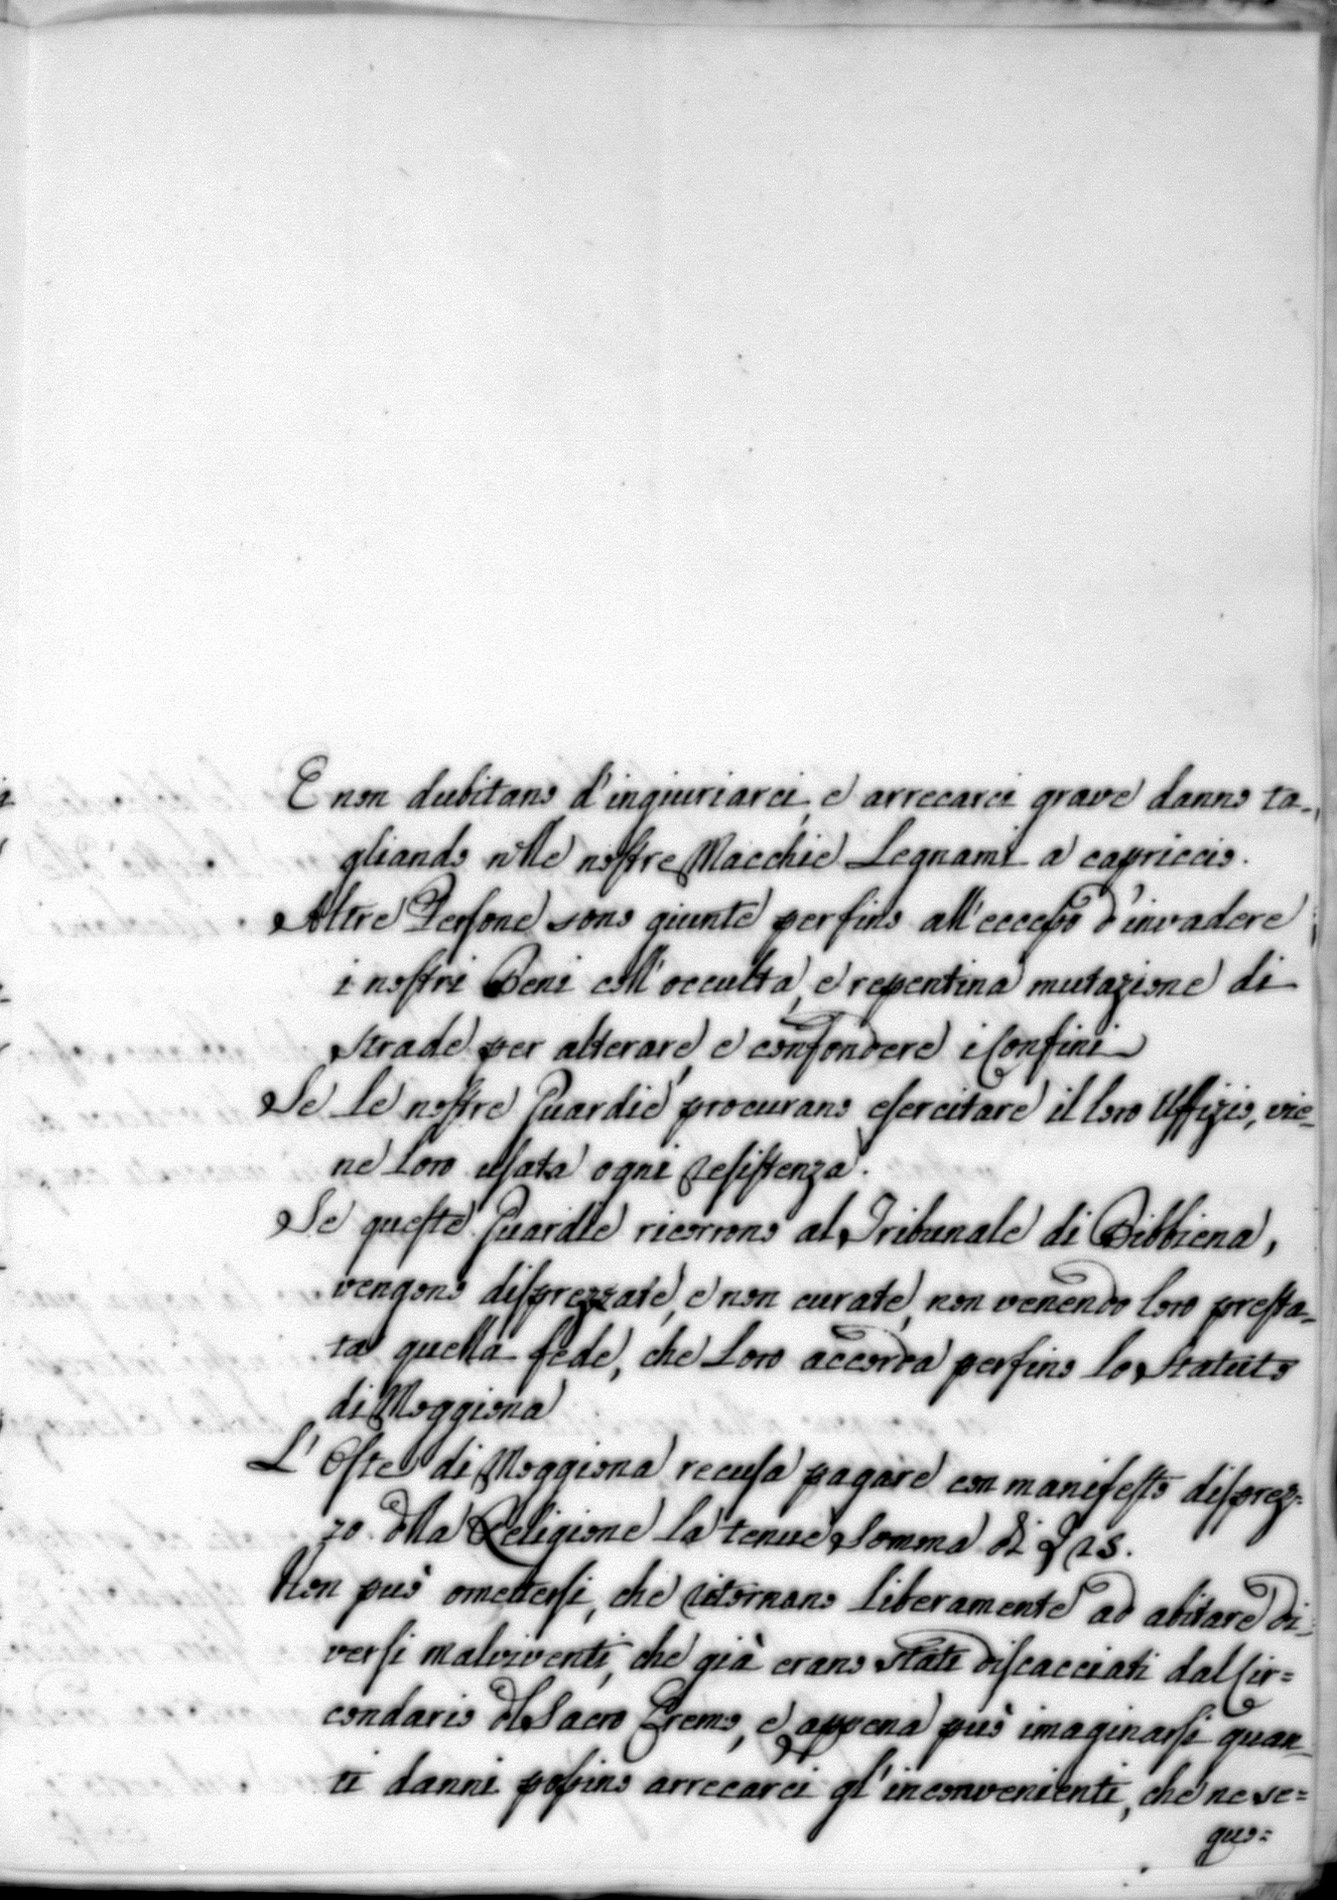 E non dubitano d'ingiuriarci, e arrecarci grave danno ta-
gliando nelle nostre Macchie Legnami a capriccio.
Altre Persone sono giunte perfino all'eccesso d'invadere
i nostri Beni coll'occulta, e repentina mutazione di
strade per alterare, e confondere i Confini
Se le nostre Guardie procurano esercitare il loro Uffizio, vie-
ne loro usata ogni resistenza.
Se queste Guardie ricorrono al Tribunale di Bibbiena,
vengono disprezzate, e non curate, non venendo loro presta-
ta quella fede, che loro accorda perfino lo Statuto
di Moggiona
L'Oste di Moggiona recusa pagare con manifesto disprez-
zo della Religione la tenue somma di
Non può omettersi, che ritornano liberamente ad abitare di-
versi malviventi, che già erano stati discacciati dal Cir=
condario del Sacro Eremo, e appena può imaginarsi quan-
ti danni possino arrecarci gl'inconvenienti, che ne se=
guo=